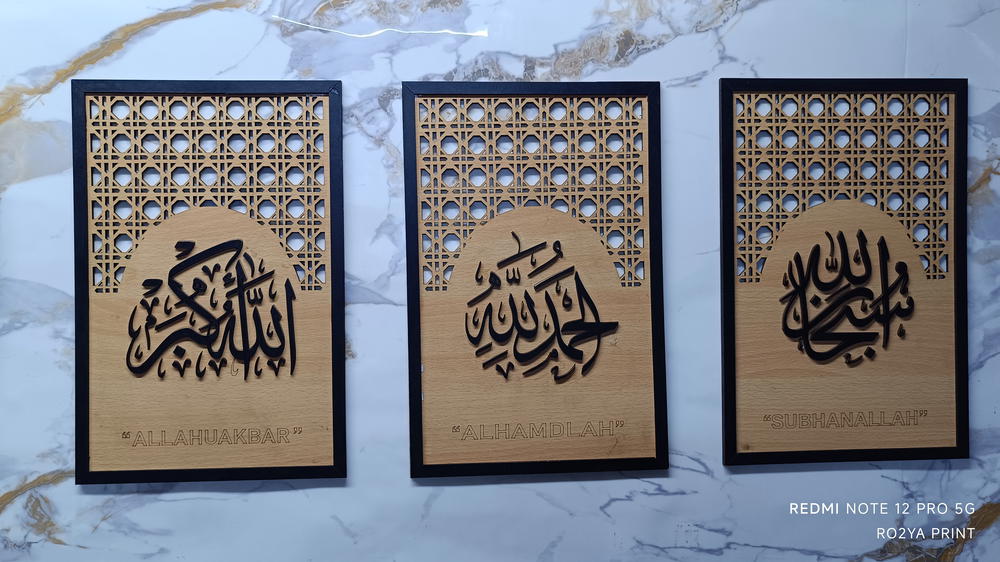 الله أكبر
"ALLAHUAKBAR"
الحمد لله
"ALHAMDLAH"
سبحان الله
"SUBHANALLAH"
REDMI NOTE 12 PRO 5G
RO2YA PRINT